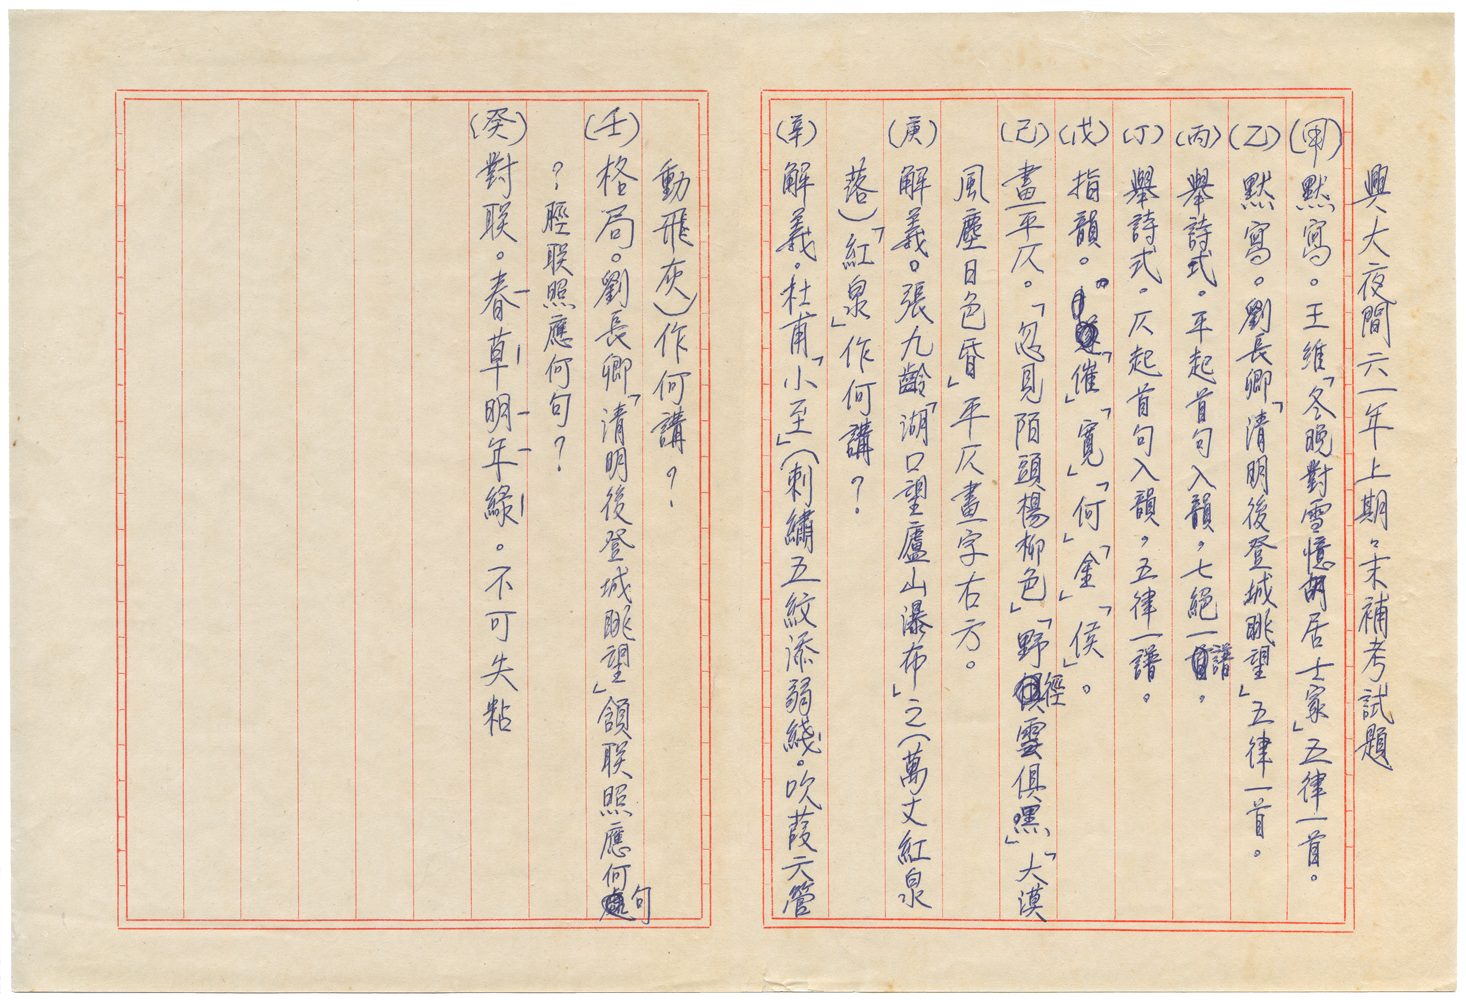 興大夜間六一年上期期末補考試題
(甲)默寫。王維「冬晚對雪憶胡居士家」五律一首。
(乙)默寫。劉長卿「清明後登城眺望」五律一首。
(丙)舉詩式。平起首句入韻，七絕一譜。
(丁)舉詩式。仄起首句入韻，五律一譜。
(戊)指韻。「催」「寬」「何」「金」「侯」。
(己)畫平仄。「忽見陌頭楊柳色」「野徑雲俱黑」「大漠
風塵日色昏」平仄畫字右方。
(庚)解義。張九齡「湖口望廬山瀑布」之(萬丈紅泉
落)「紅泉」作何講？
(辛)解義。杜甫「小至」(刺繡五紋添弱綫。吹葭六管
動飛灰)作何講？
(壬)格局。劉長卿「清明後登城眺望」頷联照應何句
？脛联照應何句？
(癸)對联。春草明年綠。不可失粘